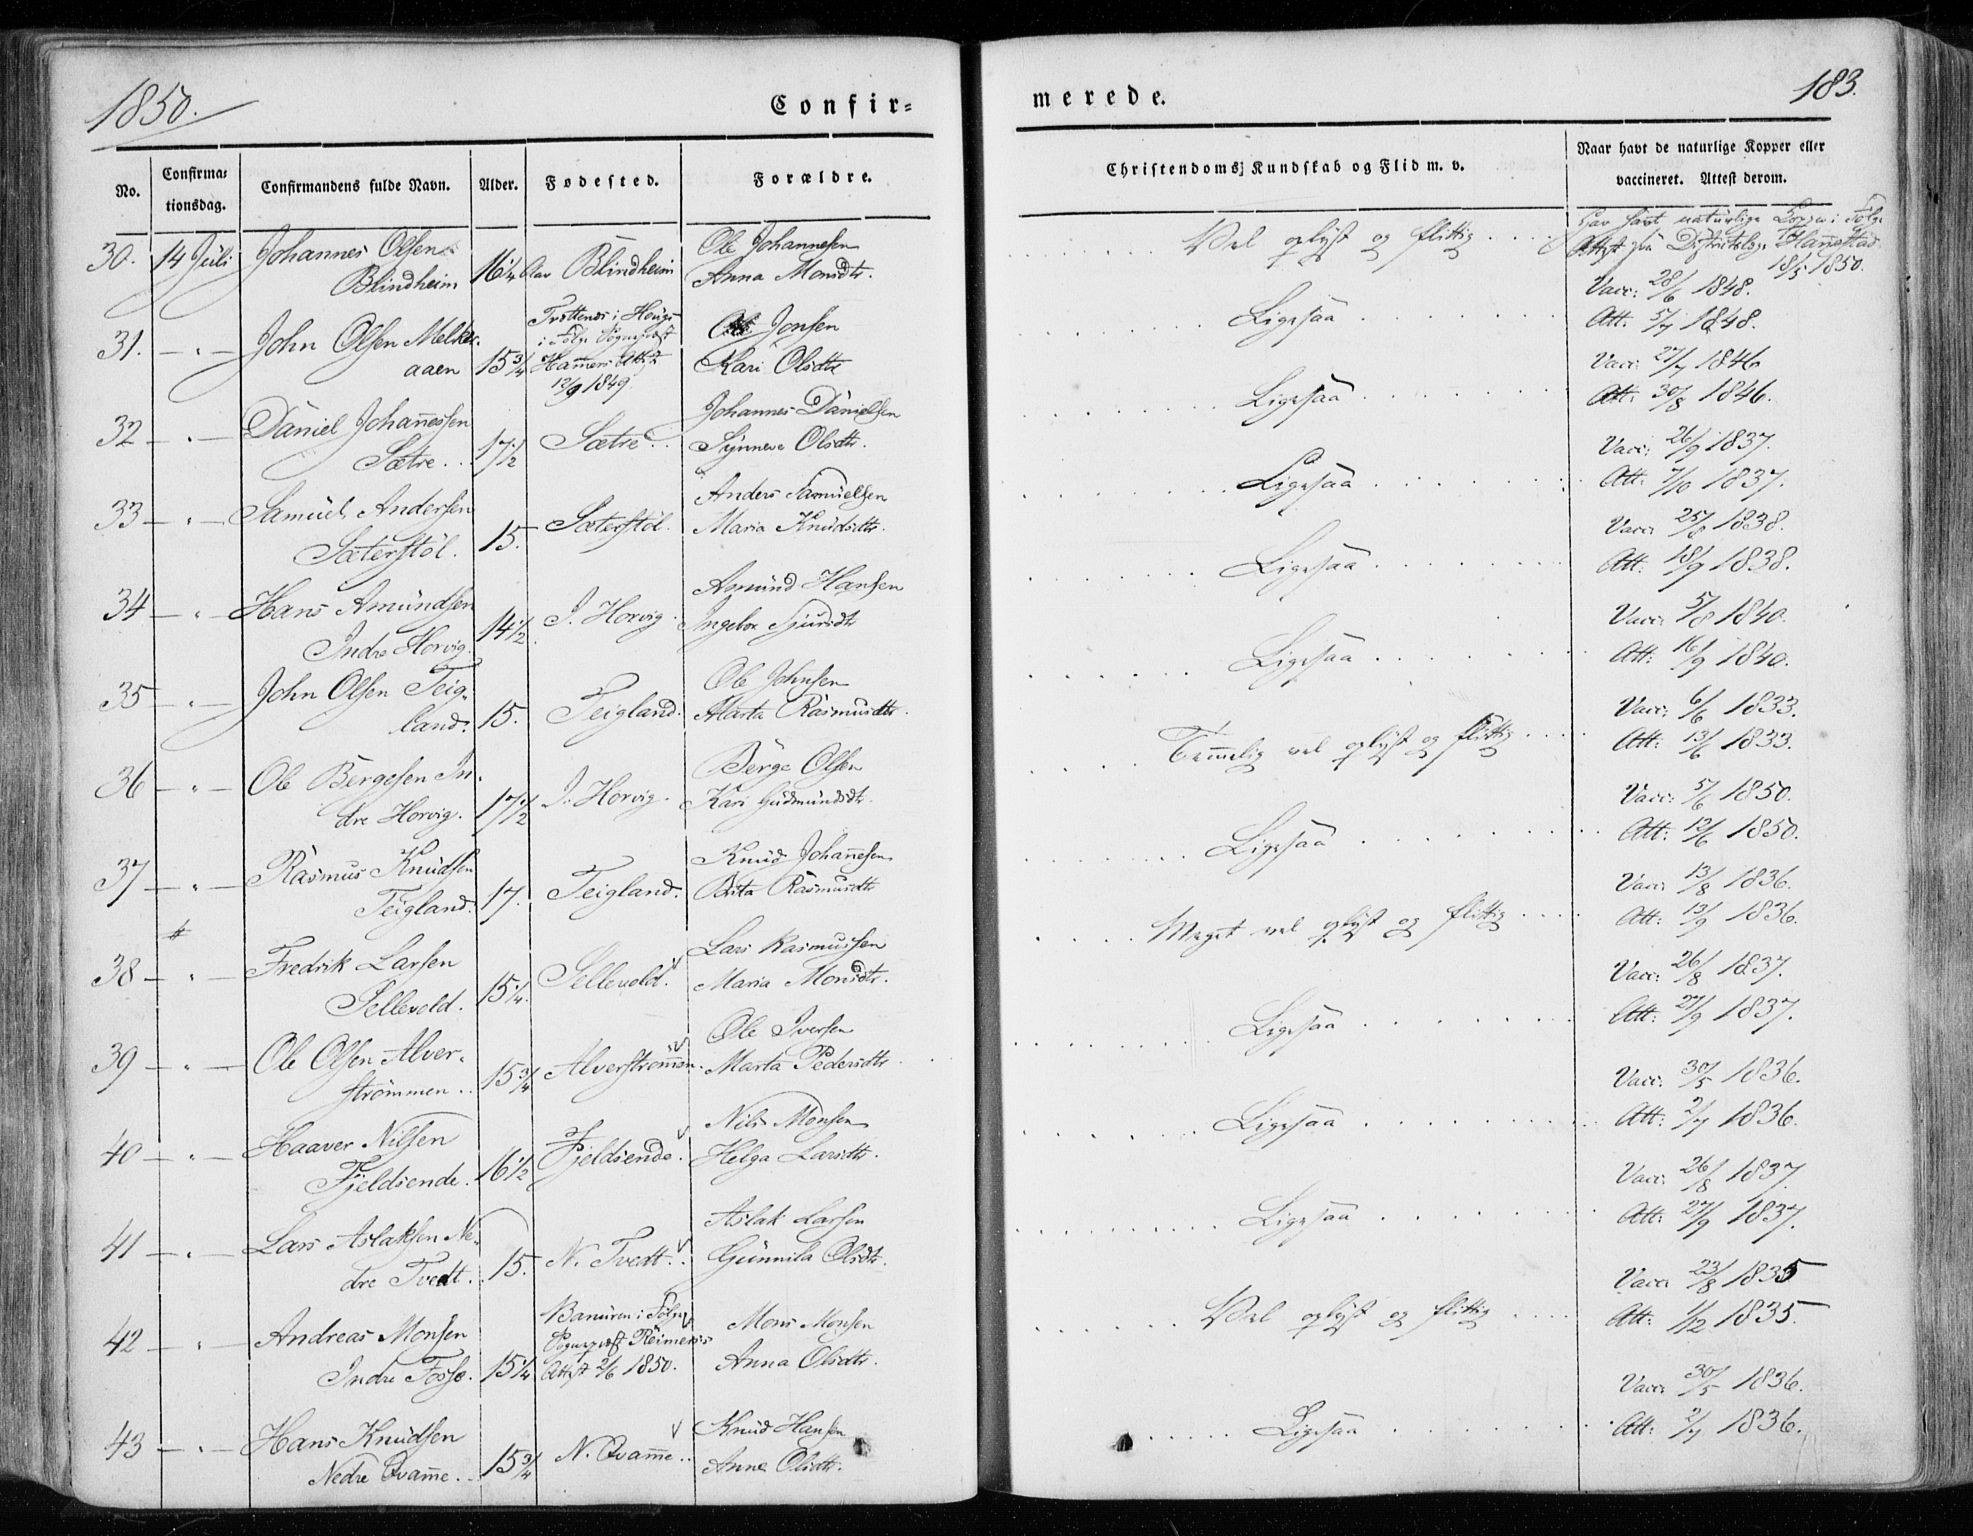 1850.
Confir=
No.
Confirma=
tionsdag.
Confirmandens fulde Navn.
Alder.
Fødested.
Forældre.
30. 14 Juli Johannes Olsen
Blindheim 16 1/4 Aar Blindheim
Ole Johannesen
Anna Monsdtr.
31. — „ — John Olsen Melke-
aaen 15 3/4
i Følge Sognepræst
Hammers Attest
12/9 1849.
Ole Jonsen
Kari Olsdtr
32 — „ — Daniel Johannessen
Sætre . . 17 1/2 Sætre . .
Johannes Danielsen
Synneve Olsdtr.
33 — „ — Samuel Andersen
Sæterstøl. 15. Sæterstøl.
Anders Samuelsen
Maria Knudsdtr.
34 — „ — Hans Amundsen
Indre Horvig. 14 1/2. I. Horvig.
Amund Hansen
Ingebor Sjursdtr
35 — „ — John Olsen Teig-
land. 15. Teigland.
Ole Johnsen
Marta Rasmusdtr.
36 — „ — Ole Børgesen In-
dre Horvig. 17 1/2 I. Horvig.
Børge Olsen
Kari Gudmundsdtr.
37 — „ — Rasmus Knudsen
Teigland. 17. Teigland.
Knud Johannesen
Brita Rasmusdtr
38 — „ — Fredrik Larsen
Sellevold. 15 1/4. Sellevold.
Lars Rasmussen
Maria Monsdtr.
39 — „ — Ole Olsen Alver-
strømmen . . 15 3/4 Alverstrømmen.
Ole Iversen
Marta Pedersdtr
40 — „ — Haaver Nilsen
Fjeldsende. 16 1/2 Fjeldsende.
Nils Monsen
Helga Larsdtr.
41 — „ — Lars Aslaksen Ne-
dre Tvedt. 15. N. Tvedt. .
Aslak Larsen
Gunnila Olsdtr.
42 — „ — Andreas Monsen
Indre Fosse. 15 1/4
i Følge
Sognepræst Reimers's
Attest 2/6 1850.
Mons Monsen
Anna Olsdtr.
43 — „ — Hans Knudsen
Nedre Qvamme. . 15 3/4 N. Qvamme . .
Knud Hansen
Anne Olsdtr.
183.
merede.
Christendoms Kundskab og Flid m. v.
Naar havt de naturlige Kopper eller
vaccineret. Attest derom.
Vel oplyst og flittig . . .
Har havt naturlige Kopper i Følge
Attest fra Districtslæge Hanestad
18/5 1850.
Ligesaa
Vacc: 28/6 1848.
Att. 5/7 1848.
Ligesaa
Vacc: 27/7 1846
Att: 30/8 1846.
Ligesaa
Vacc: 26/9 1837.
Att: 7/10 1837.
Ligesaa
Vacc: 25/8 1838.
Att: 18/9 1838.
Ligesaa
Vacc: 5/8 1840.
Att: 16/9 1840.
Temmelig vel oplyst og flittig . . .
Vacc: 6/6 1833.
Att: 13/6 1833.
Ligesaa
Vacc: 5/6 1850.
Att: 12/6 1850.
Meget vel oplyst og flittig . . .
Vacc: 13/8 1836.
Att: 13/9 1836.
Ligesaa
Vacc: 26/8 1837.
Att: 27/9 1837.
Ligesaa
Vacc: 30/5 1836.
Att: 2/7 1836.
Ligesaa
Vacc: 26/8 1837.
Att: 27/9 1837.
Vel oplyst og flittig . . .
Vacc: 23/8 1835
Att: 1/12 1835.
Ligesaa
Vacc: 30/5 1836.
Att: 2/7 1836.